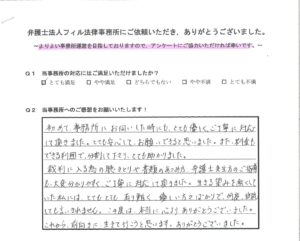 弁護士法人フィル法律事務所にご依頼いただき、ありがとうございました。
～よりよい事務所運営を目指しておりますので、アンケートにご協力いただければ幸いです。～
Q1 当事務所の対応にはご満足いただけましたか?
☑ とても満足 □ やや満足 □ どちらでもない □ やや不満 □ とても不満
Q2 当事務所へのご感想をお願いいたします!
初めて事務所にお伺いした時にも、とても優しく、ご丁寧に対応
して頂きました。とても安心して、お願いできると思いました。また、料金も
できる利用で、分割して下さり、とても助かりました。
裁判に入る為の聴きとりや書類のあつめ方、弁護士先生方のご指導
も大変分かりやすく、ご丁寧に対応して頂きました。生きる望みを無くして
いた私には、とても とても 有り難く、優しい方々ばかりで、何度、感謝
しても足りません。この度は、本当に心よりありがとうございました。
これから、前向きに生きて行こうと思います。ありがとうございました。